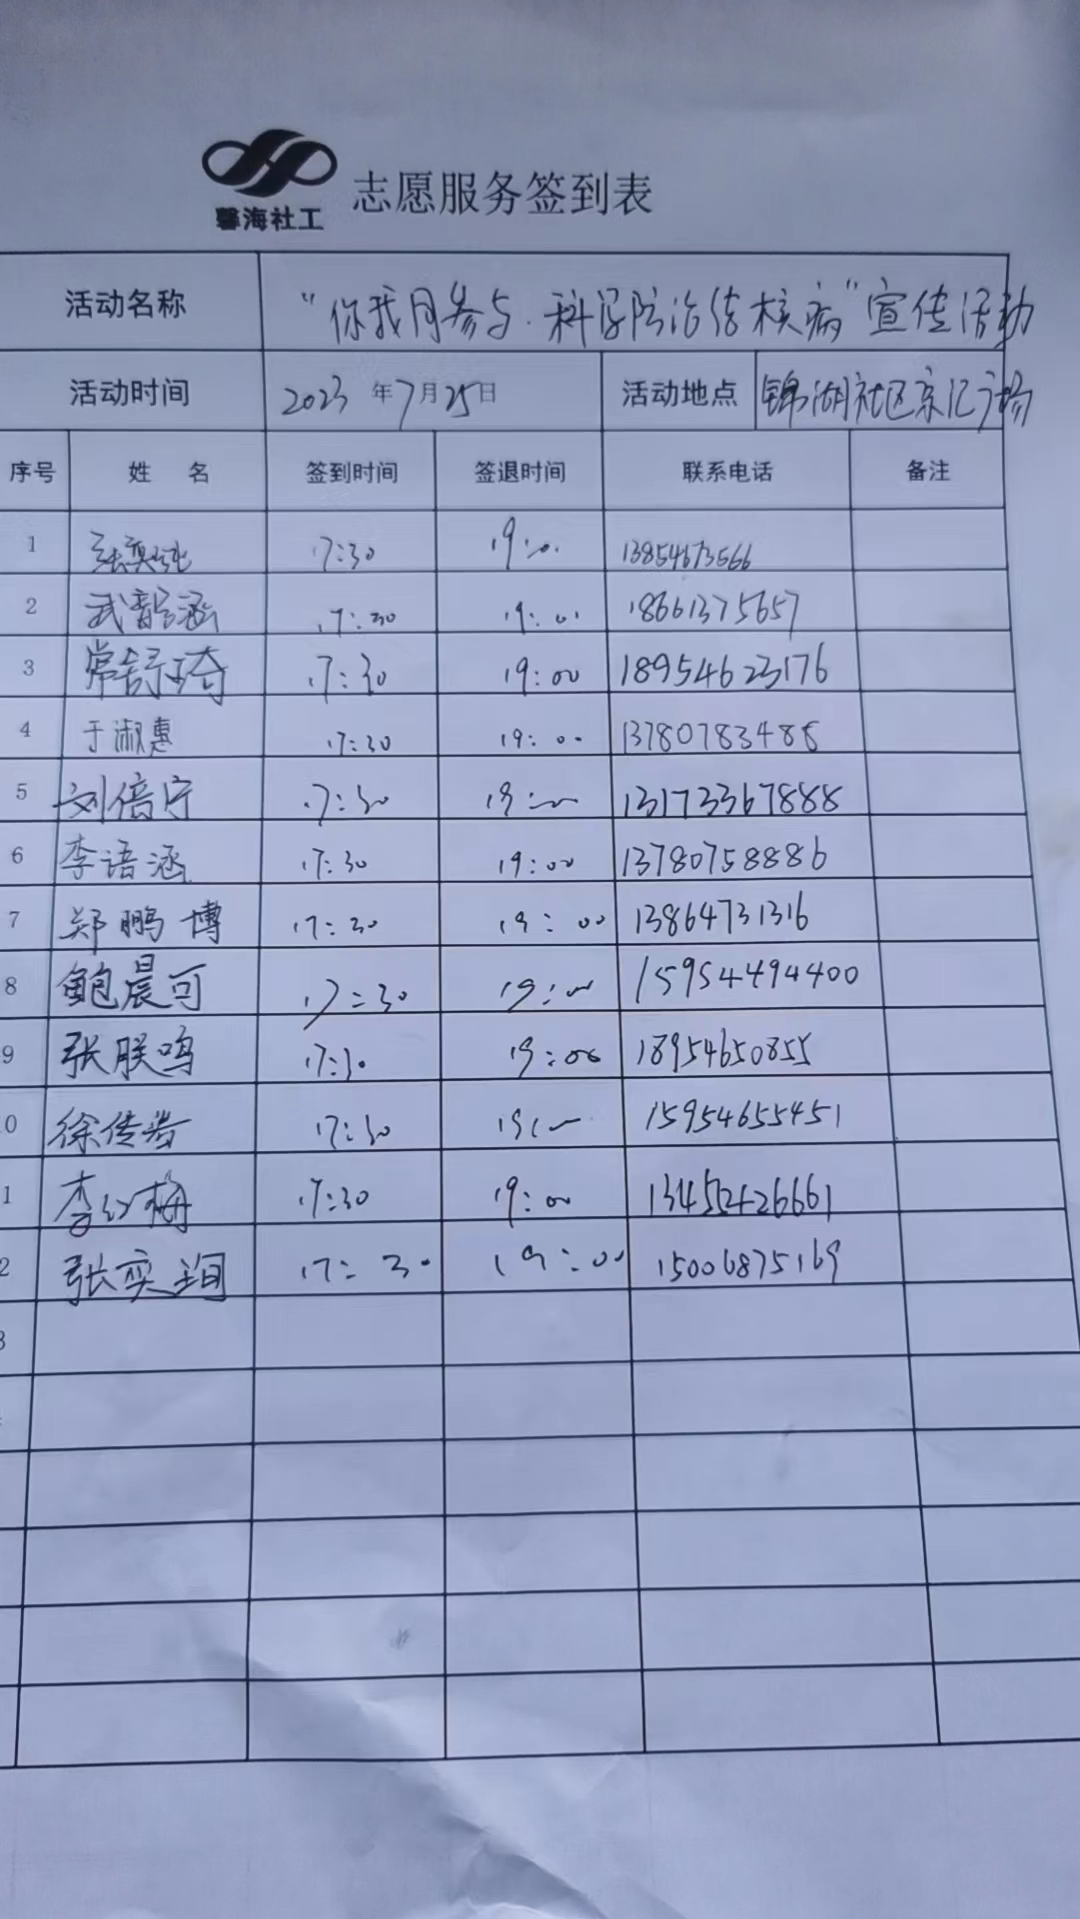 馨海社工
志愿服务签到表
活动名称 "你我同参与.科学防治结核病"宣传活动
活动时间 2023年7月25日 活动地点 锦湖社区京汇广场
序号 姓 名 签到时间 签退时间 联系电话 备注
1 张奕 17:30 19:00 13854673566
2 武韵涵 17:30 19:00 18661375657
3 常舒琦 17:30 19:00 18954623176
4 于淑惠 17:30 19:00 13780783488
5 刘倍宁 17:30 19:00 13173367888
6 李语涵 17:30 19:00 13780758886
7 郑鹏博 17:30 19:00 13864731316
8 鲍晨可 17:30 19:00 15954494400
9 张朕鸣 17:30 19:00 18954650855
0 徐传 17:30 19:00 15954655451
1 李红梅 17:30 19:00 13455426661
2 张奕珣 17:30 19:00 15006875169
3